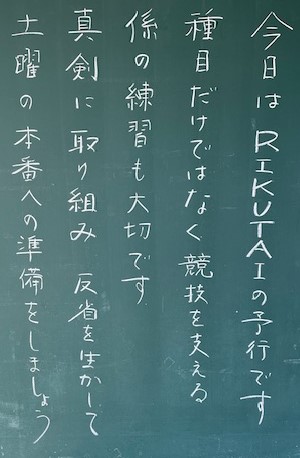 今日はRIKUTAIの予行です
種目だけではなく競技を支える
係の練習も大切です
真剣に取り組み 反省を生かして
土曜の本番への準備をしましょう